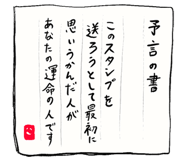 予言の書
このスタンプを
送ろうとして最初に
思いうかんだ人が
あなたの運命の人です